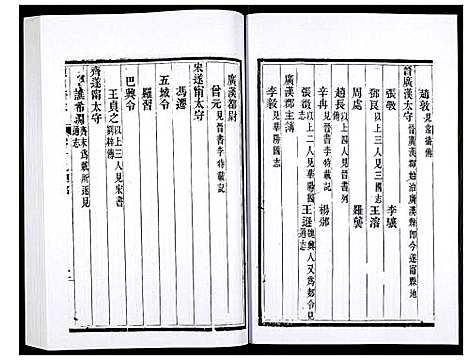 趙敦見常璩傳
晉廣漢太守晉廣漢郡始治廣漢縣即今遂甯縣地
張敦 李驤
鄧艮以上二人見三國志 王濬
周處 羅襲
趙長以上四人見晉書列
辛冉見晉書李特載記 楊邠
張徵以上二人見華陽國志 王遜魏興人又為都令見通志
廣漢郡主簿
李毅見華陽國志
廣漢都尉
曾元見晉書李特載記
宋遂甯太守
馮遷
五城令
羅習
巴興令
王貞之以上三人見宋書劉粹傳
齊遂甯太守
譙希淵齊末為戴所逐見通志